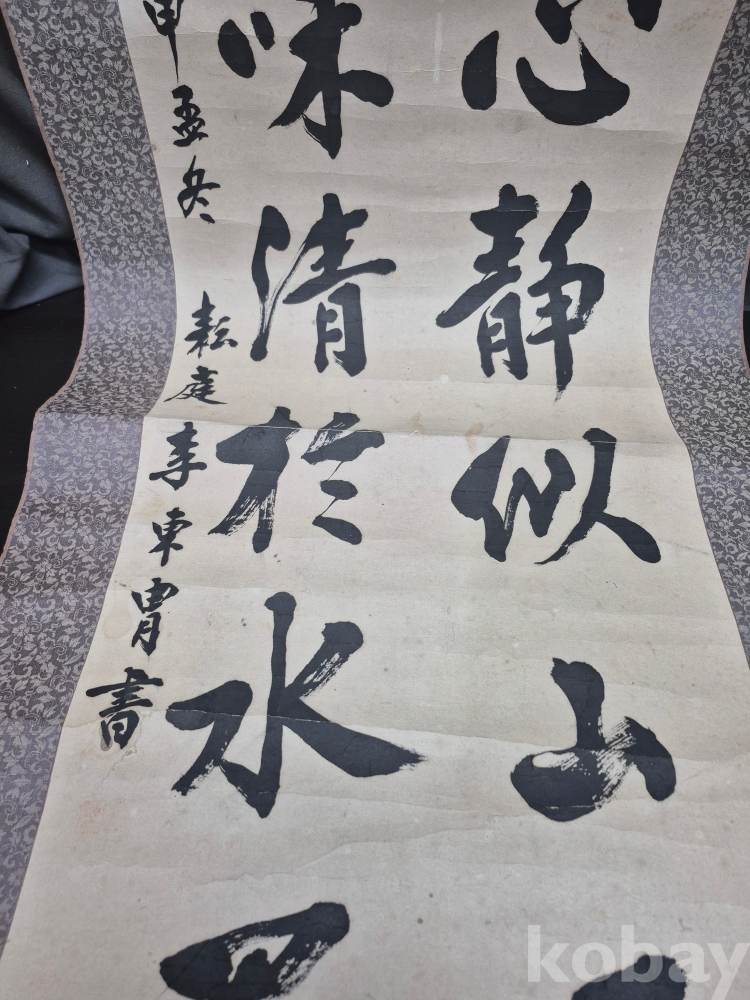 心靜似山
味清於水
申孟冬 耘庭 李東胃書
kobay